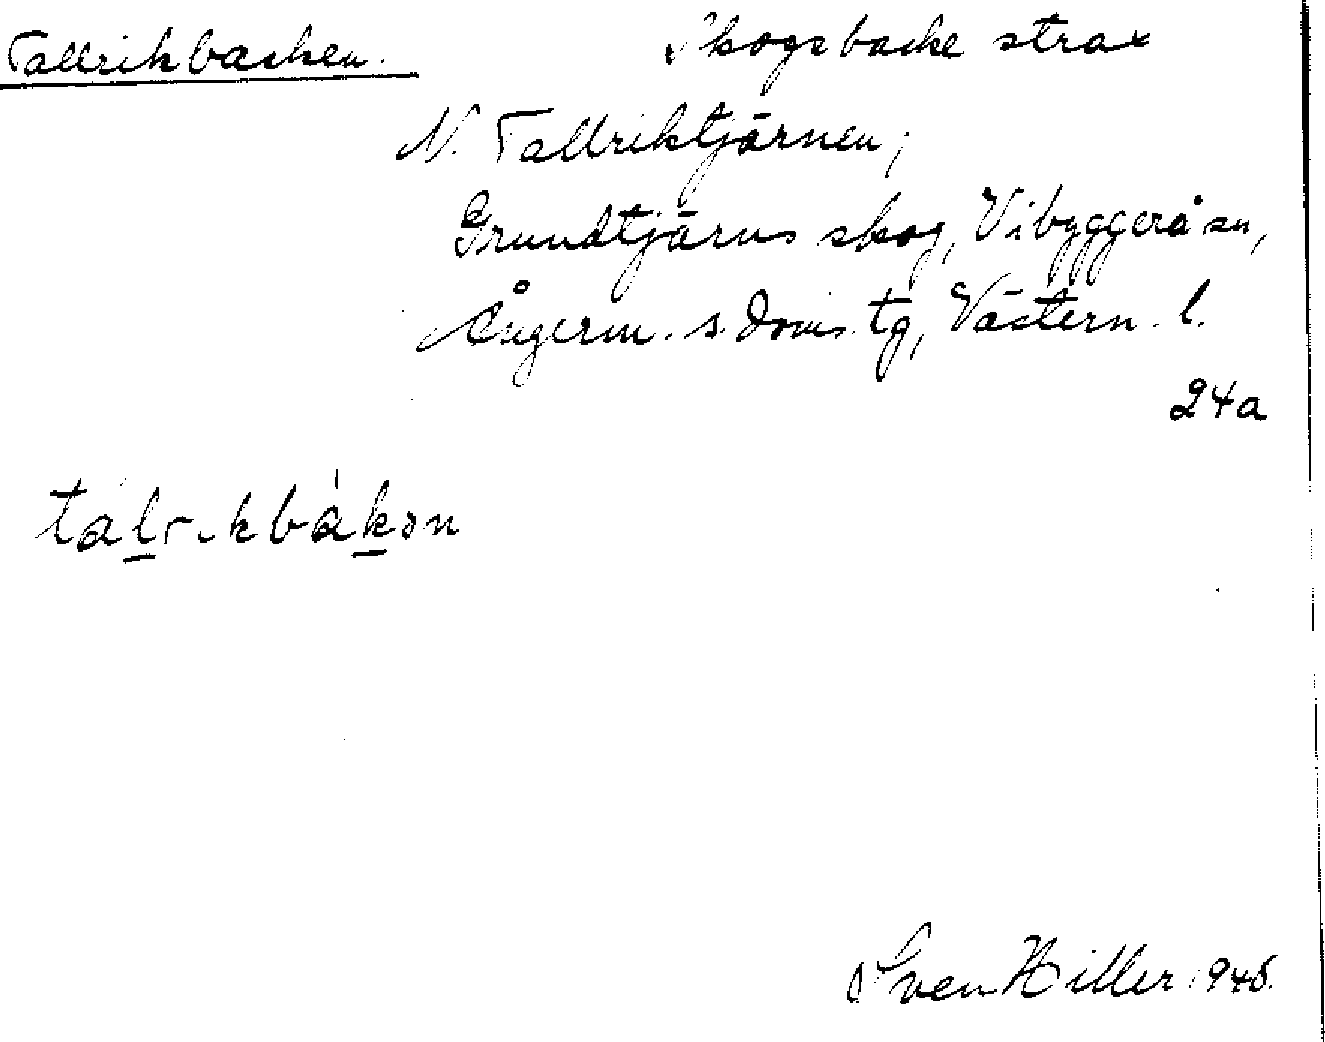 Tallrikbacken. Skogsbacke strax
N. Tallriktjärnen,
Grundtjärns skog, Vibyggerå sn,
Ångerm. s. doms. tg, Västern. l.
24a
talrikbákən
Sven Hiller 1945.